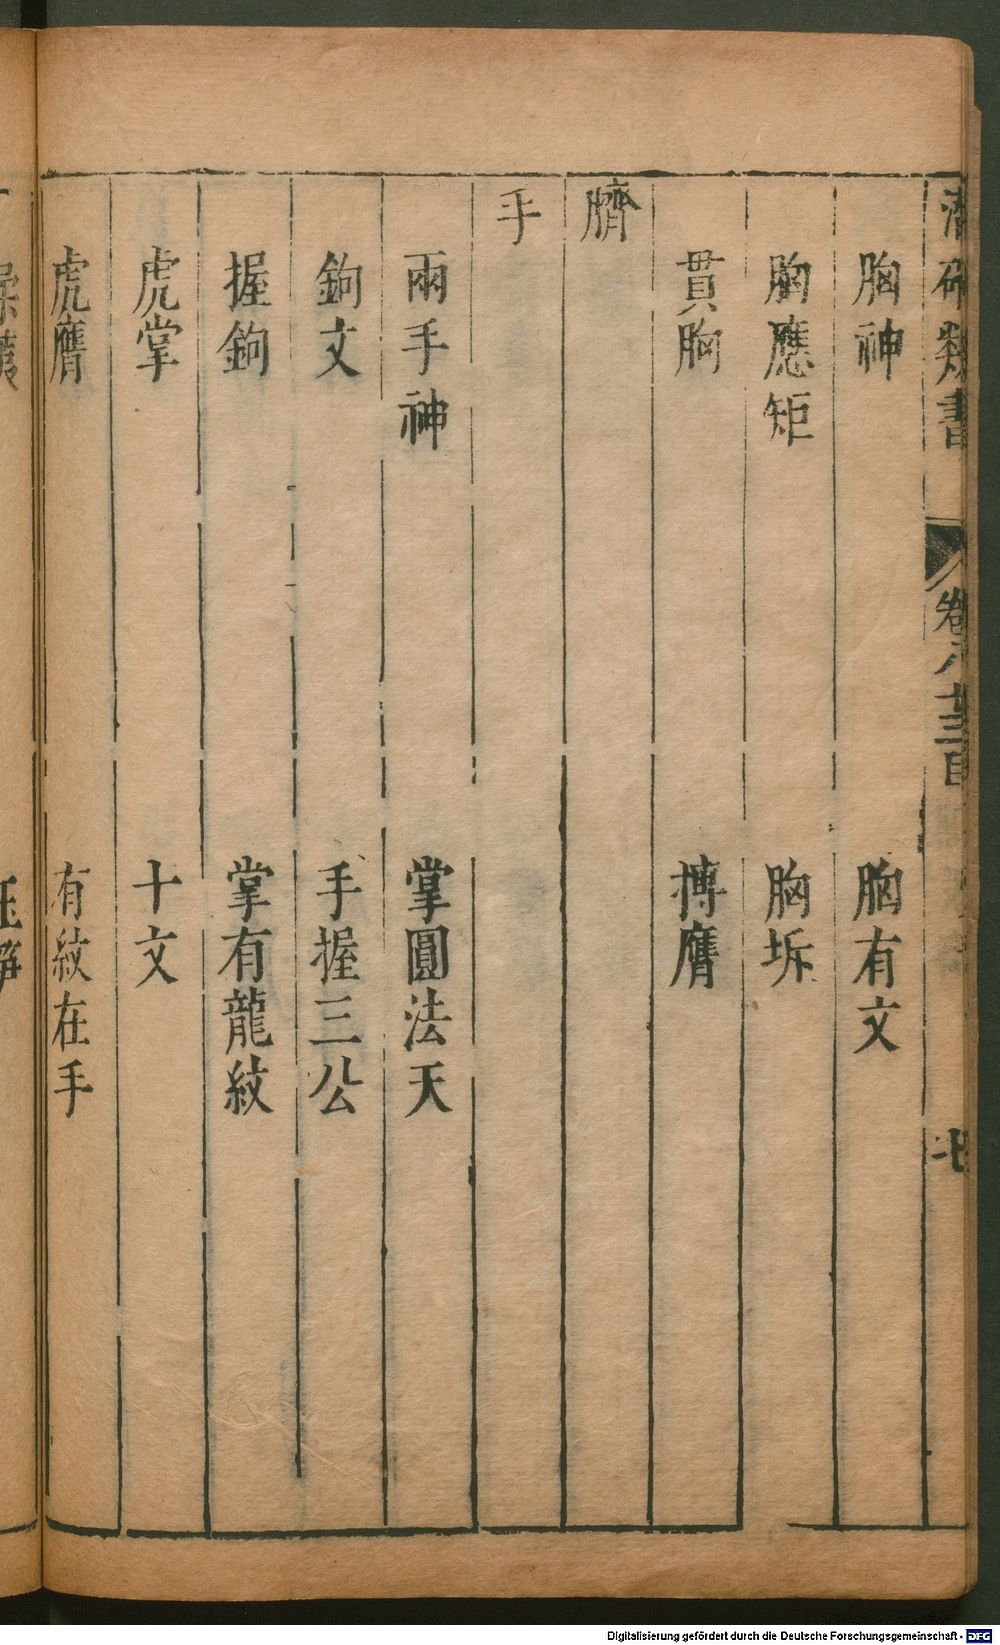 類書 卷八 七
胸神 胸有文
胸應矩 胸坼
貫胸 搏膺
臍
手
兩手神 掌圓法天
鉤文 手握三公
握鉤 掌有龍紋
虎掌 十文
虎膺 有紋在手
Digitalisierung gefördert durch die Deutsche Forschungsgemeinschaft - DFG